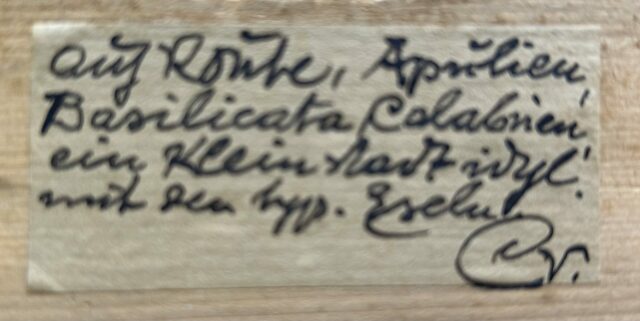 auf Route, Apulien,
Basilicata Calabrien
ein Kleinstadt idyl!
mit den typ. Eseln.